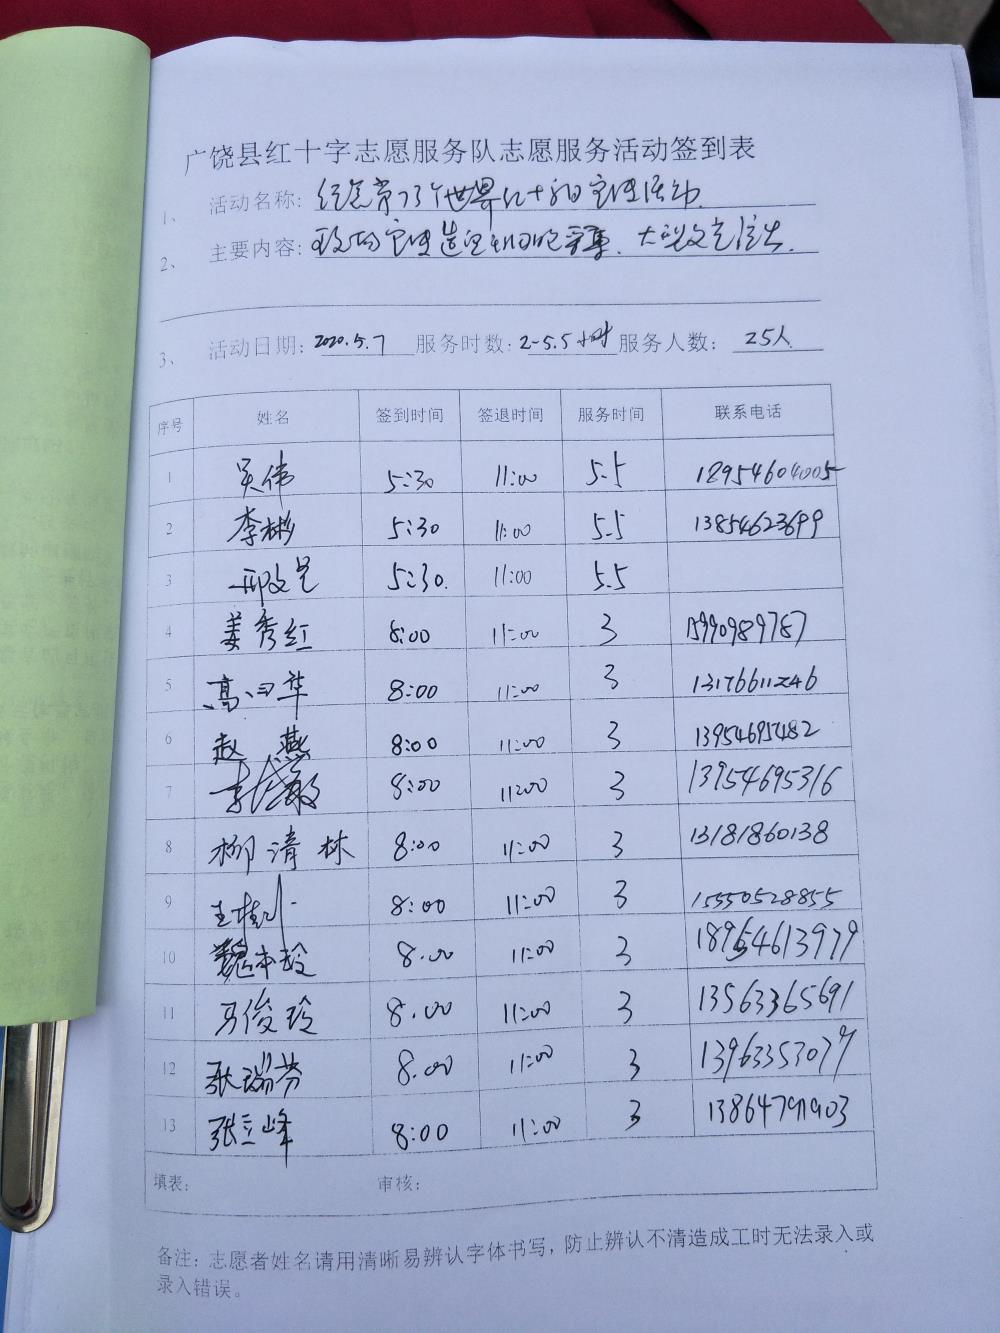 广饶县红十字志愿服务队志愿服务活动签到表
1、 活动名称: 纪念第73个世界红十字日宣传活动
2、 主要内容: 宣传造血干细胞采集、
3、 活动日期: 2020.5.7 服务时数: 2-5.5小时 服务人数: 25人
序号 姓名 签到时间 签退时间 服务时间 联系电话
1 吴伟 5:30 11:00 5.5 18954604005
2 李彬 5:30 11:00 5.5 13854623699
3 邢文 5:30 11:00 5.5
4 姜秀红 8:00 11:00 3 15990989787
5 高 华 8:00 11:00 3 13176611246
6 赵燕 8:00 11:00 3 13954695482
7 李 敏 8:00 11:00 3 13954695316
8 柳清林 8:00 11:00 3 13181860138
9 王桂 8:00 11:00 3 15550528855
10 魏本玲 8.00 11:00 3 18954613979
11 马俊玲 8.00 11:00 3 13563365691
12 耿瑞芬 8.00 11:00 3
13 张立峰 8:00 11:00 3 13864791903
填表: 审核:
备注: 志愿者姓名请用清晰易辨认字体书写，防止辨认不清造成工时无法录入或
录入错误。